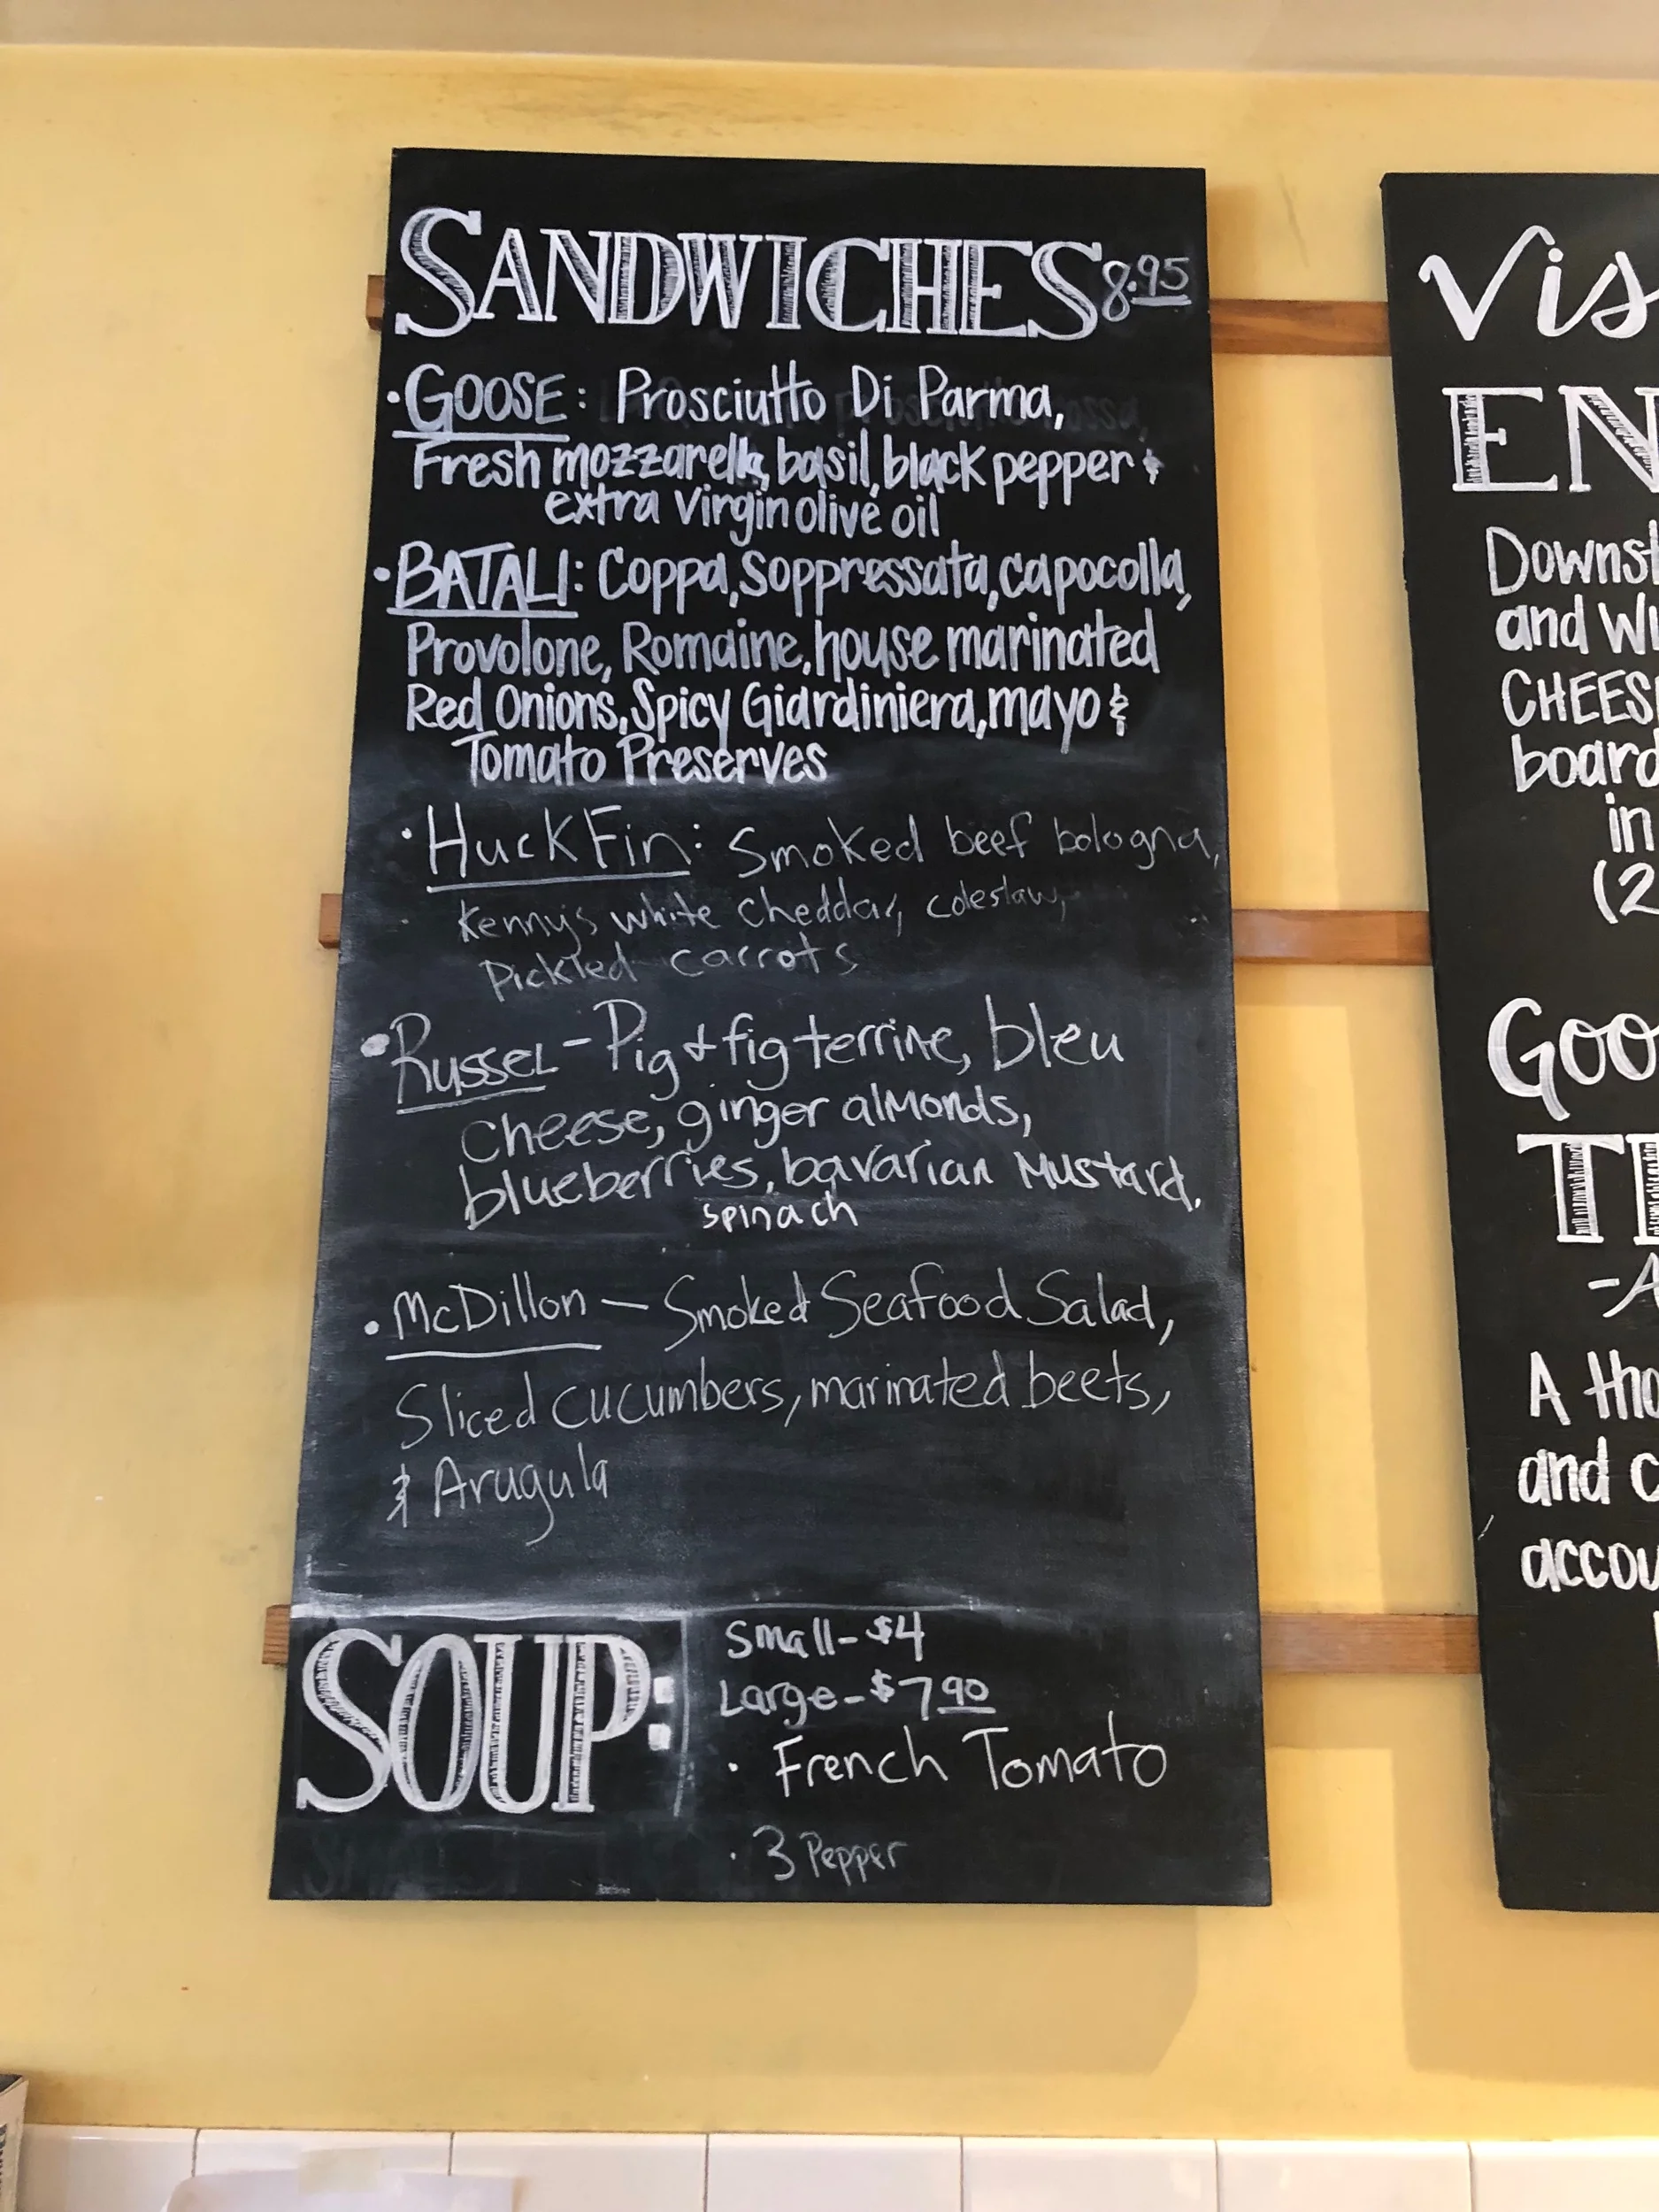 SANDWICHES 8.95
• GOOSE: Prosciutto Di Parma,
Fresh mozzarella, basil, black pepper &
extra virgin olive oil
• BATALI: Coppa, Soppressata, capocolla,
Provolone, Romaine, house marinated
Red Onions, Spicy Giardiniera, mayo &
Tomato Preserves
• Huck Fin: Smoked beef bologna,
Kenny's white cheddar, coleslaw,
Pickled carrots
• Russel - Pig & fig terrine, bleu
cheese, ginger almonds,
blueberries, bavarian mustard,
spinach
• McDillon - Smoked Seafood Salad,
Sliced cucumbers, marinated beets,
& Arugula
SOUP:
Small - $4
Large - $7.90
• French Tomato
• 3 Pepper
Vis
EN
Downst
and Wi
CHEES
board
in
(2
GOO
TE
-A
A tho
and c
accou